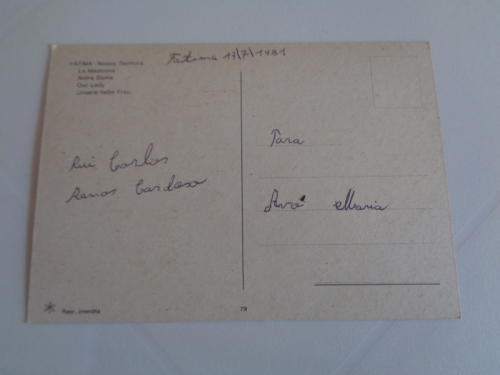 Fatima 13/7/1981
FÁTIMA - Nossa Senhora
La Madonna
Notre Dame
Our Lady
Unsere liebe Frau
Rui Carlos
Ramos Cardoso
Para
Avó Maria
Repr. interdite
79